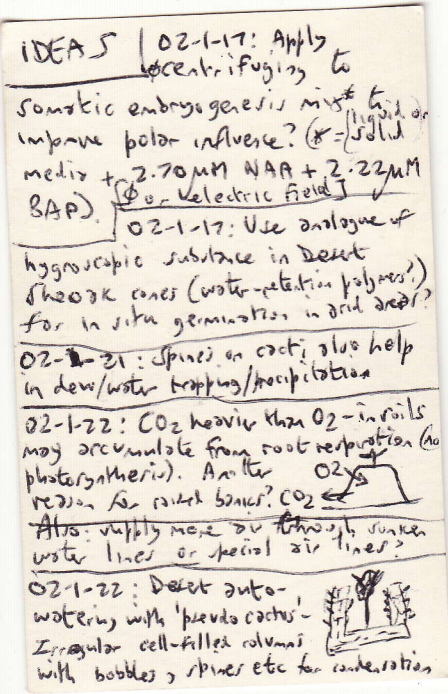 IDEAS | 02-1-17: Apply
øcentrifuging to
somatic embryogenesis mix* to
improve polar influence? (* = [liquid or
solid
media + 2.70 µM NAA + 2.22 µM
BAP). [ø or electric field]
02-1-17: Use analogue of
hygroscopic substance in Desert
Sheoak cones (water-retention polymers?)
for in situ germination in arid areas?
02-1-21: Spines on cacti also help
in dew/water trapping/precipitation
02-1-22: CO2 heavier than O2 - in soils
may accumulate from root respiration (no
photosynthesis). Another
reason for raised banks?
O2
CO2
Also: supply more air through sunken
water lines or special air lines?
02-1-22: Desert auto-
watering with 'pseudocactus' -
Irregular cell-filled columns
with bobbles, spines etc for condensation